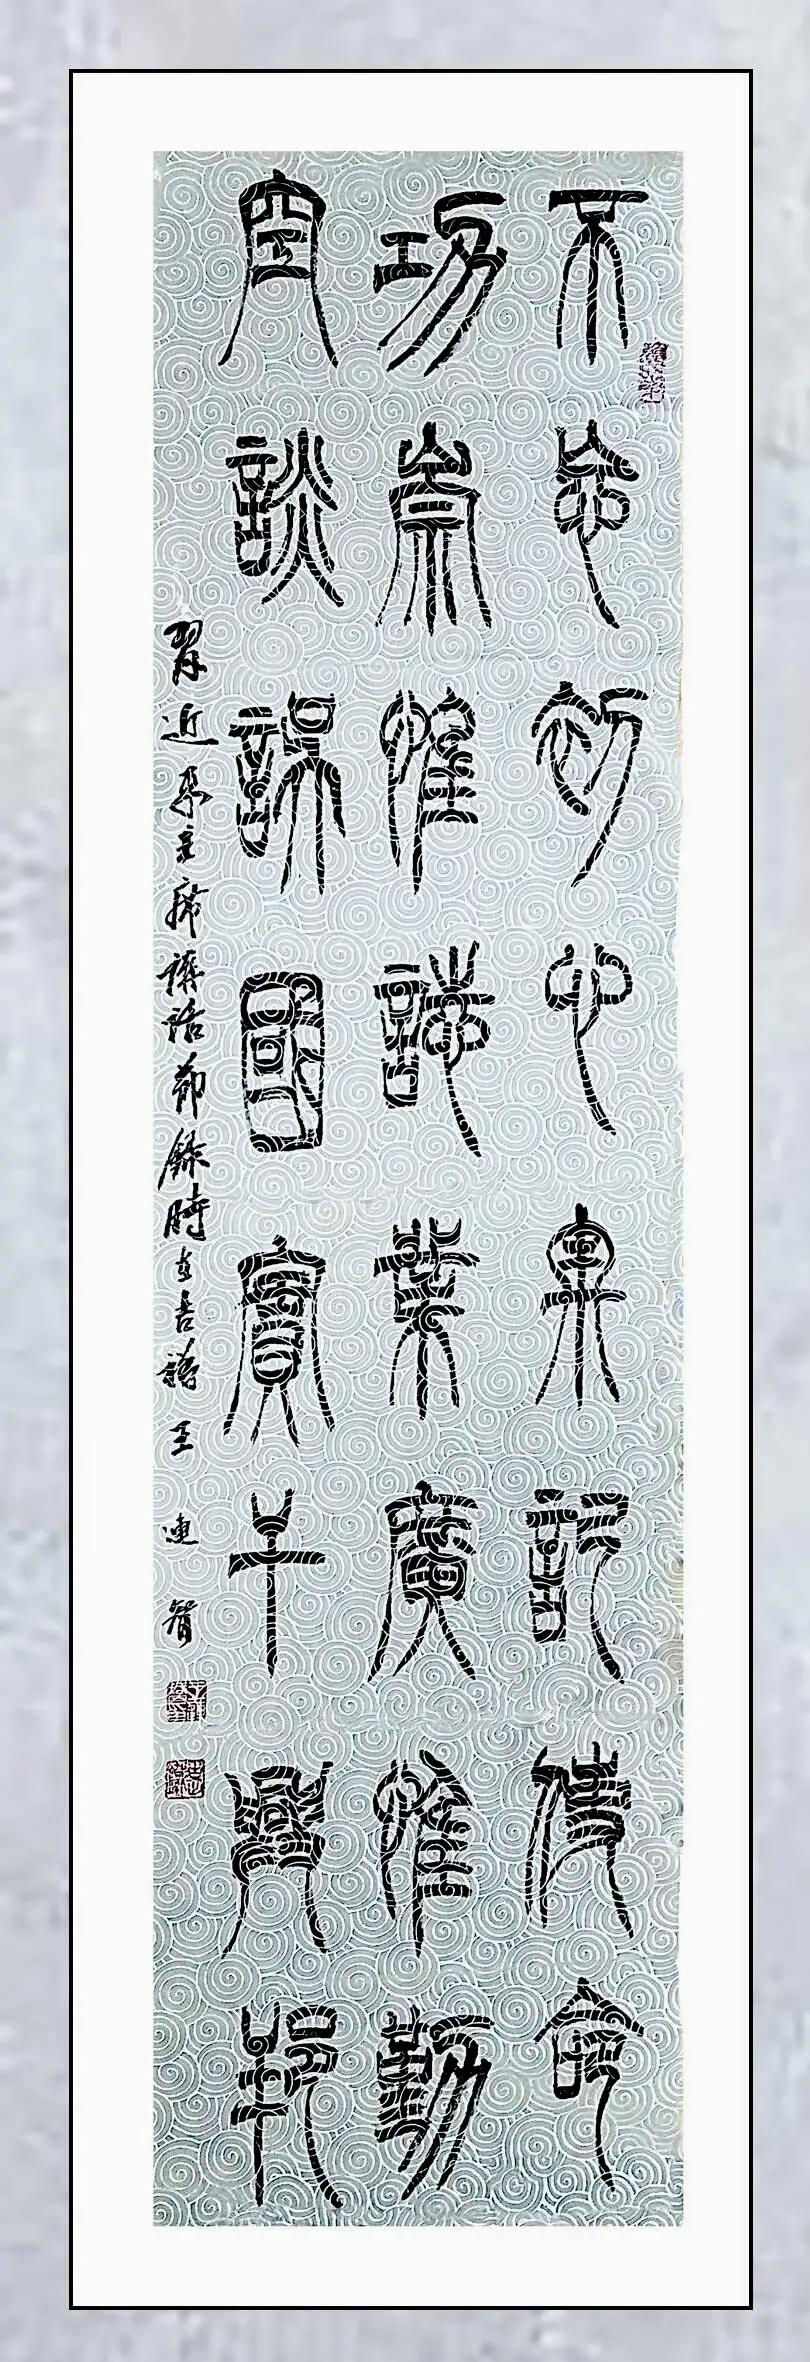 不忘初心牢記使命
功崇惟誌業廣惟勤
空談誤國實干興邦
習近平主席講話節錄時在王連智